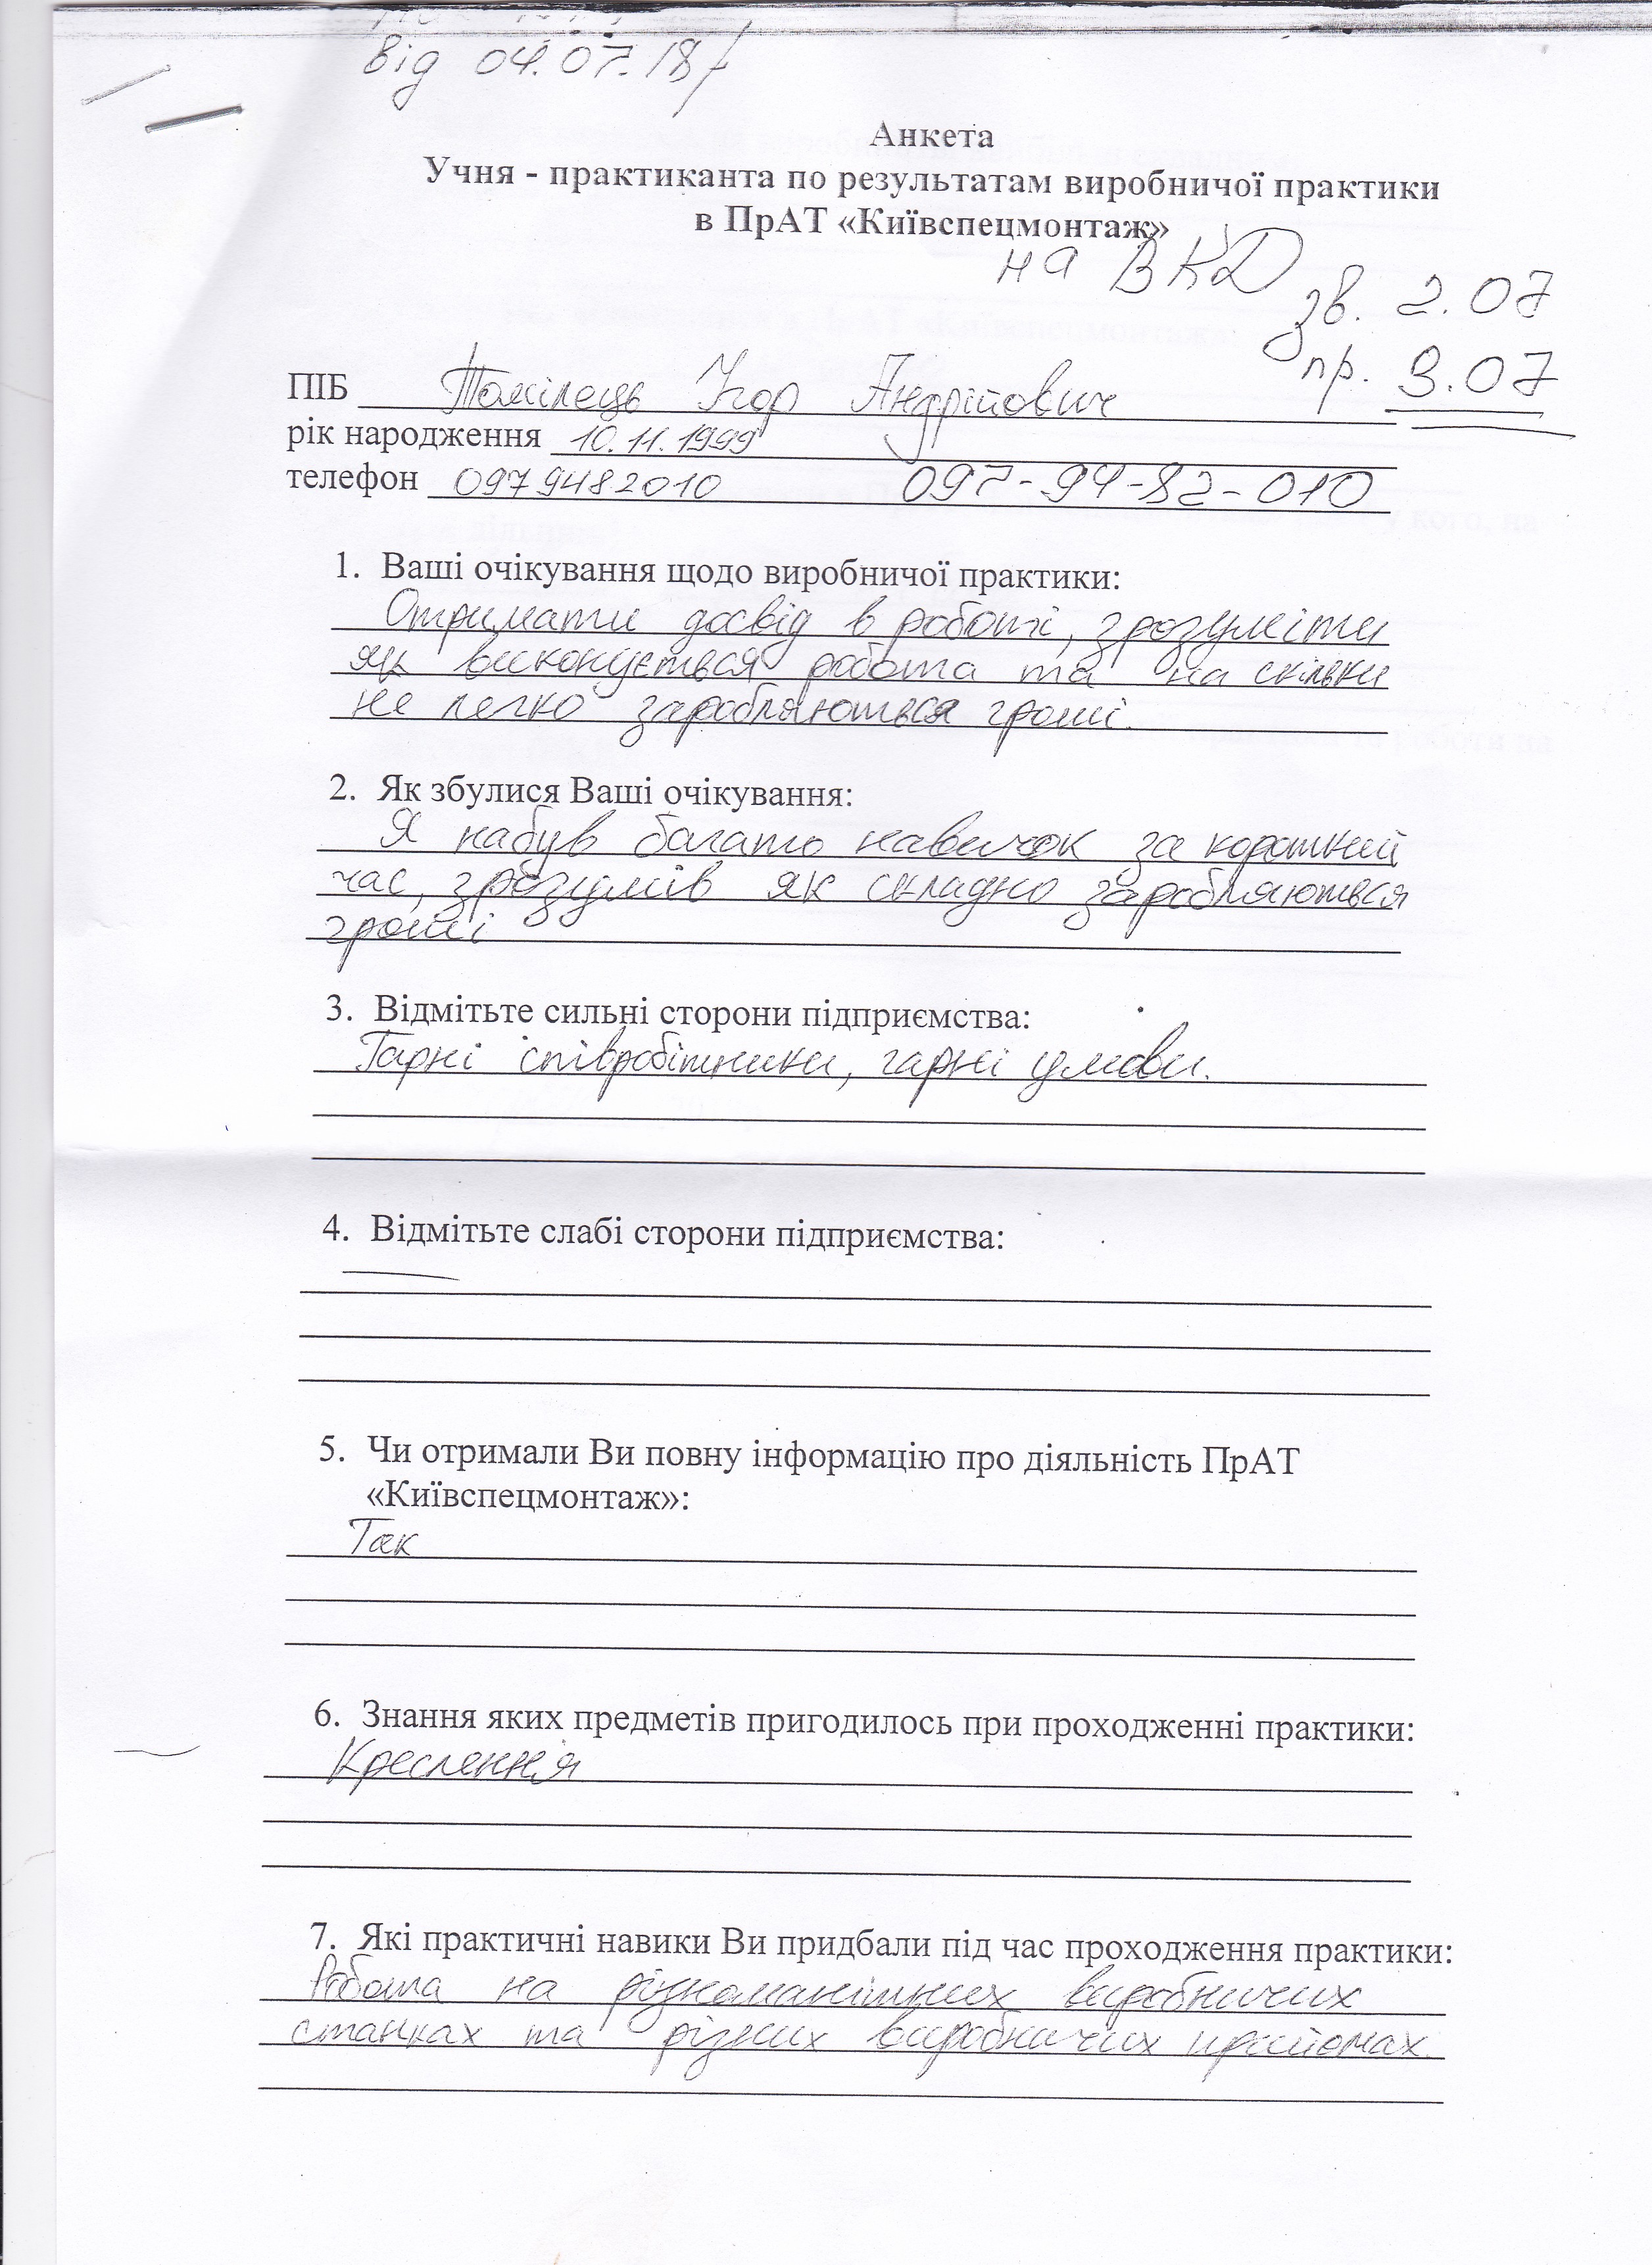 від 04.07.18
Анкета
Учня - практиканта по результатам виробничої практики
в ПрАТ «Київспецмонтаж»
на ВКД
зв. 2.07
пр. 3.07
ПІБ Томілець Ігор Андрійович
рік народження 10.11.1999
телефон 0979482010 097-94-82-010
1. Ваші очікування щодо виробничої практики:
Отримати досвід в роботі, зрозуміти
як виконується робота та на скільки
не легко заробляються гроші.
2. Як збулися Ваші очікування:
Я набув багато навичок за короткий
час, зрозумів як складно заробляються
гроші
3. Відмітьте сильні сторони підприємства:
Гарні співробітники, гарні умови.
4. Відмітьте слабі сторони підприємства:
—
5. Чи отримали Ви повну інформацію про діяльність ПрАТ
«Київспецмонтаж»:
Так
6. Знання яких предметів пригодилось при проходженні практики:
Креслення
7. Які практичні навики Ви придбали під час проходження практики:
Робота на різноманітних виробничих
станках та різних виробничих прийомах.